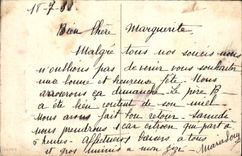 Bien Chère Marguerite
Malgré tous nos soucis nous
n'oublions pas de venir vous souhaiter
une bonne et heureuse fête. Nous
ça dimanche. Le père B
a été bien content de son
Nous avons fait bon retour. Samedi
nous prendrons 1 car citroen qui part à
5 heures. Affectueux baisers à tous
et gros à mon